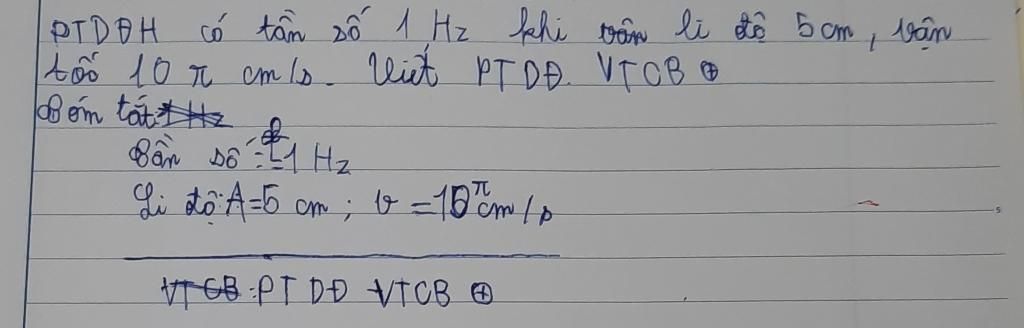 PTDĐH có tần số 1 Hz khi vân li độ 5 cm, vận
tốc 10 π cm/s. Viết PTDĐ. VTCB ⊕
Tóm tắt
Tần số f = 1 Hz
Li độ: A = 5 cm ; v = 10π cm/s
PT DĐ VTCB ⊕